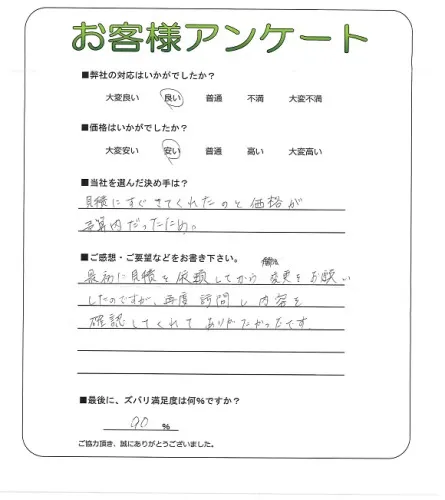 お客様アンケート
■弊社の対応はいかがでしたか？
大変良い 良い 普通 不満 大変不満
■価格はいかがでしたか？
大変安い 安い 普通 高い 大変高い
■当社を選んだ決め手は？
見積にすぐきてくれたのと価格が
予算内だったため。
■ご感想・ご要望などをお書き下さい。
最初に見積を依頼してから変更をお願い
したのですが、再度訪問し内容を
確認してくれてありがたかったです。
■最後に、ズバリ満足度は何%ですか？
90 %
ご協力頂き、誠にありがとうございました。